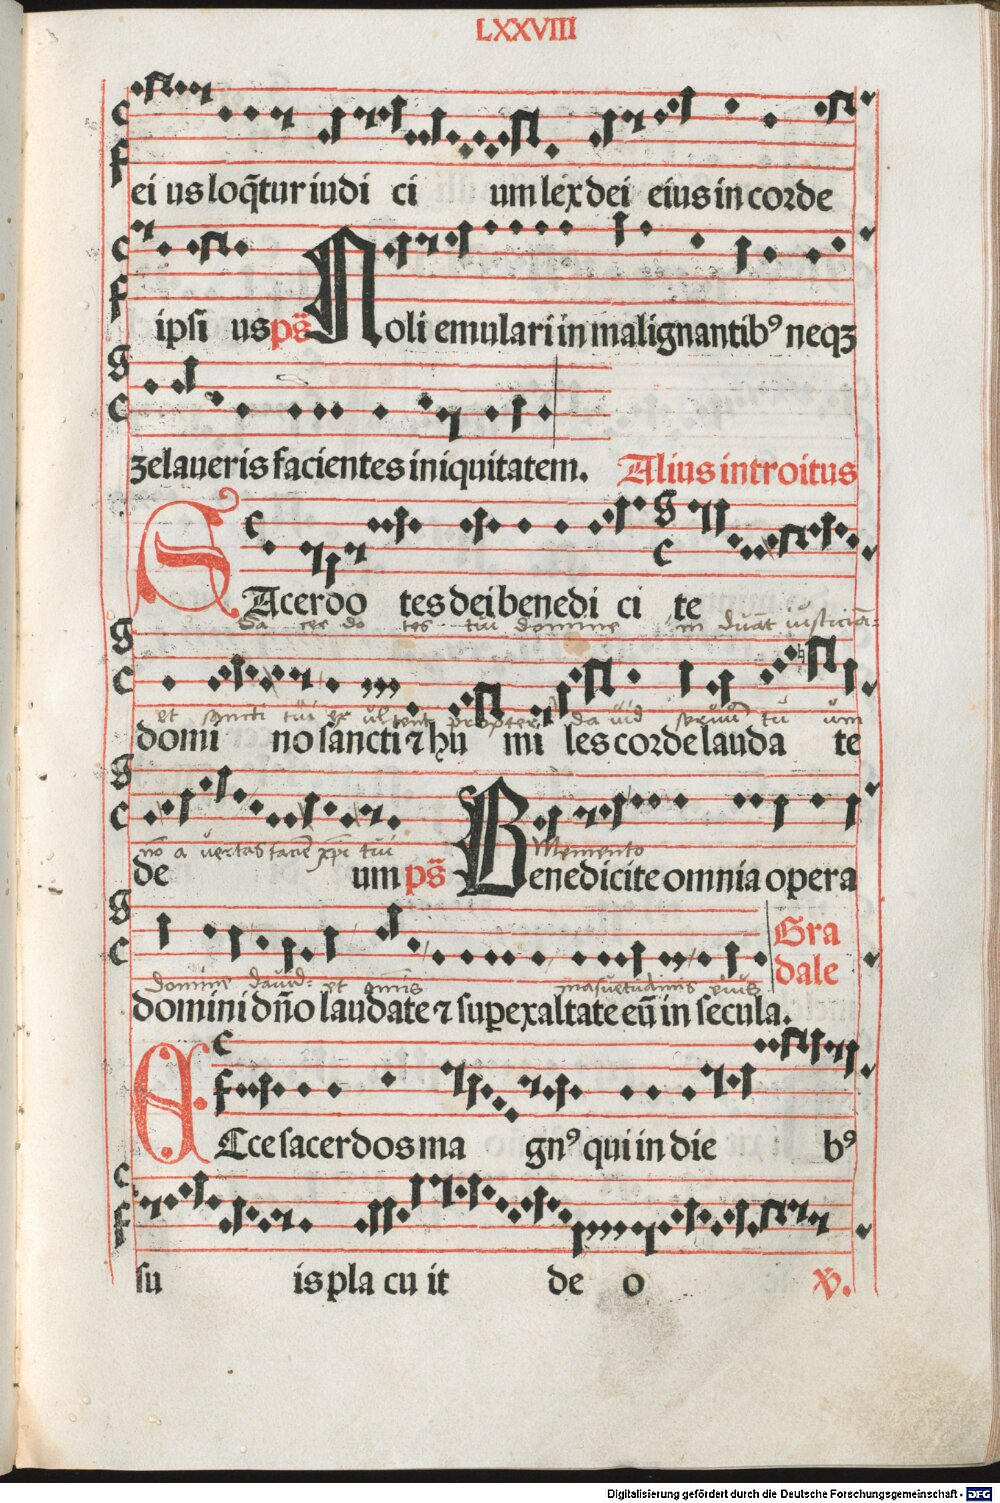 LXXVIII
ei us loq̃tur iudi ci um lex dei eius in corde
ipsi us ps̃ Noli emulari in malignantibꝰ neqꝫ
zelaueris facientes iniquitatem. Alius introitus
SAcerdo tes dei benedi ci te
Sa cer do tes tui domine in duāt iusticiā
et sancti tui ex ultent propter da uid seruū tu um
domi no sancti ⁊ hu mi les corde lauda te
nō a uertas faciē xp̄i tui Memento
de um ps̃ Benedicite omnia opera
Gra
dale
domine dauid: et om̄is mansuetudinis eius
domini dn̄o laudate ⁊ superexaltate eū in secula.
ECce sacerdos ma gnꝰ qui in die bꝰ
su is pla cu it de o ꝟ.
Digitalisierung gefördert durch die Deutsche Forschungsgemeinschaft - DFG